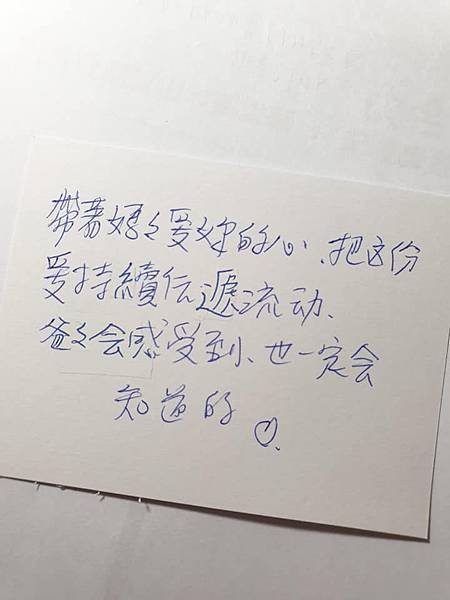 帶著媽々愛妳的心、把这份
愛持續伝遞流动、
爸々会感受到、也一定会
知道的♡.